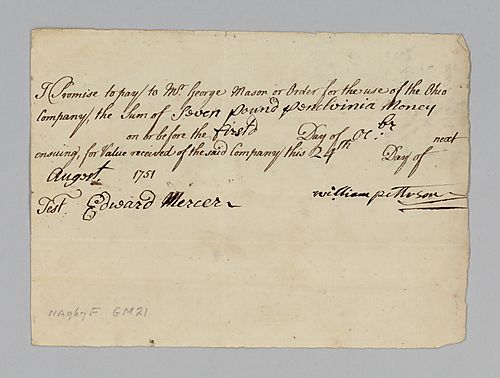 I Promise to pay to Mr. George Mason or Order for the use of the Ohio
Company, the Sum of Seven pound penelvinia Money
on or before the first Day of Oc.br next
ensuing, for Value received of the said Company this 24th Day of
Augest 1751
Test. Edward Mercer
william pitteson
NA967F GM21